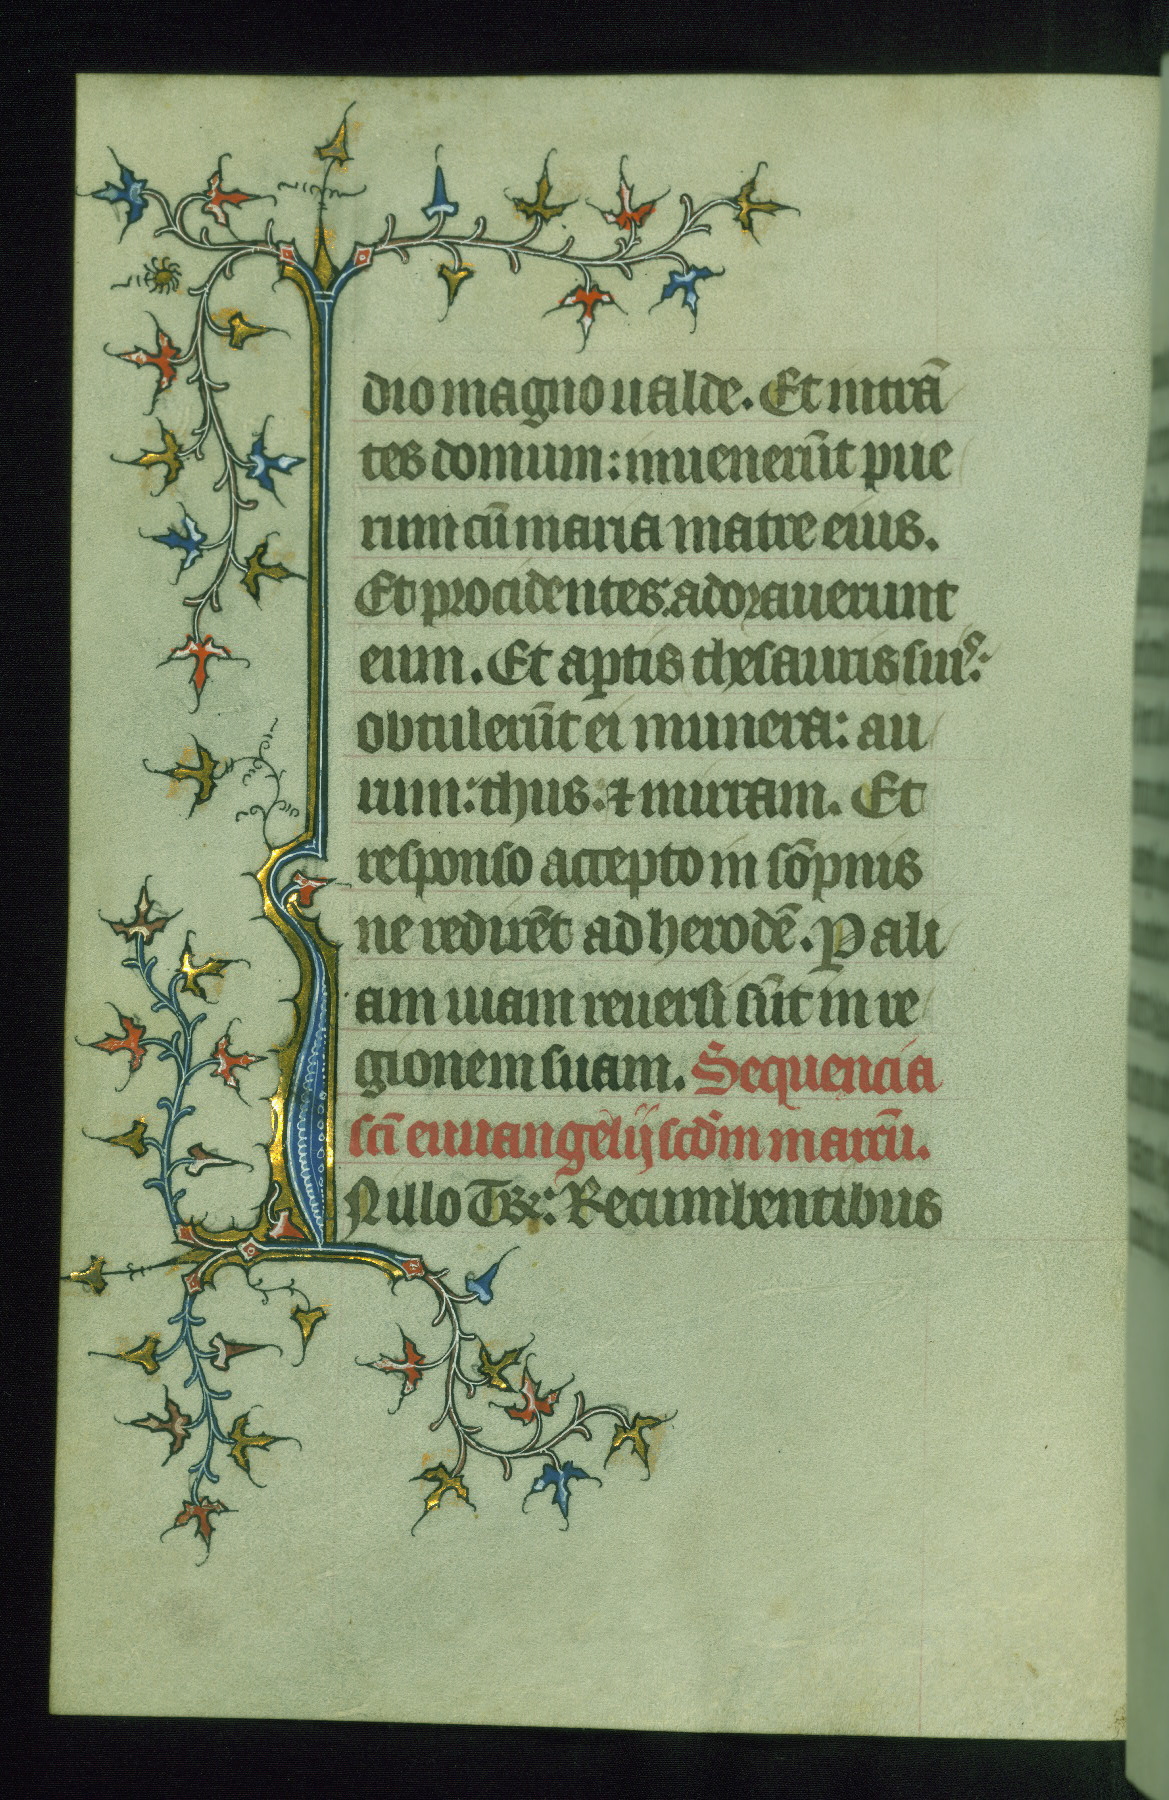 dio magno ualde. Et intrā
tes domum: inuenerūt pue
rum cū maria matre eius.
Et procidentes: adorauerunt
eum. Et aptis thesauris suis:
obtulerūt ei munera: au
rum: thus: ⁊ mirram. Et
responso accepto in sōpnis
ne redirēt ad herodē. P ali
am uiam reuersi sūt in re
gionem suam. Sequencia
scī euuangelij scd̄m marcū.
N illo T&: Recumbentibus